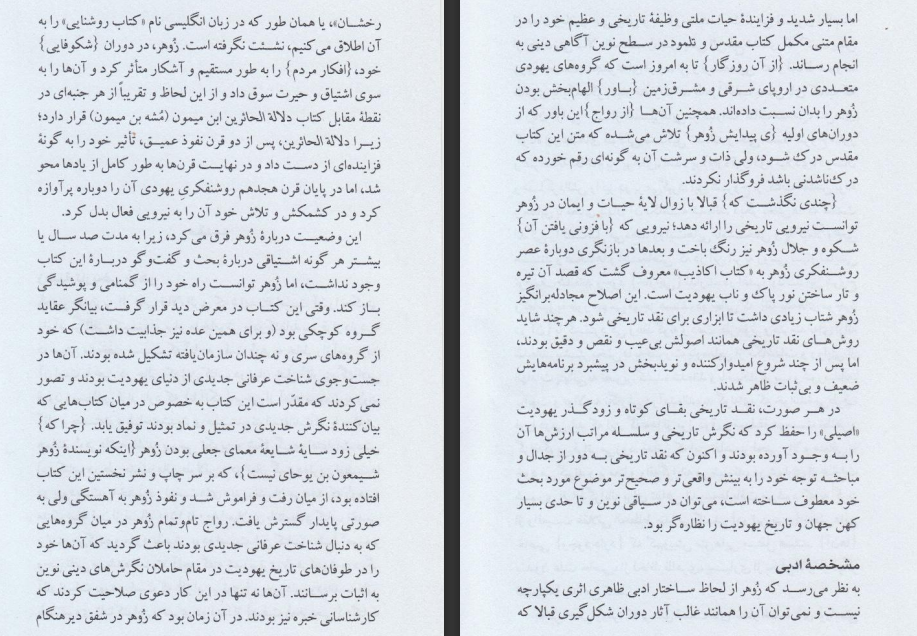 رخشــان»، یا همان طور که در زبان انگلیسی نام «کتاب روشنایی» را به
آن اطلاق می‌کنیم، نشــئت نگرفته است. زُوهر، در دوران {شکوفایی}
خود، {افکار مردم} را به طور مستقیم و آشکار متأثر کرد و آن‌ها را به
سوی اشتیاق و حیرت سوق داد و از این لحاظ و تقریباً از هر جنبه‌ای در
نقطهٔ مقابل کتاب دلالة الحائرین ابن میمون (مُشه بن میمون) قرار دارد؛
زیــرا دلالة الحائرین، پس از دو قرن نفوذ عمیــق، تأثیر خود را به گونهٔ
فزاینده‌ای از دست داد و در نهایــت قرن‌ها به طور کامل از یادها محو
شد، اما در پایان قرن هجدهم روشنفکریِ یهودی آن را دوباره پرآوازه
کرد و در کشمکش و تلاش خود آن را به نیرویی فعال بدل کرد.
این وضعیــت دربارهٔ زُوهر فرق می‌کرد، زیرا به مدت صد ســال یا
بیشــتر هر گونه اشــتیاقی دربارهٔ بحث و گفت‌وگو دربــارهٔ این کتاب
وجود نداشــت، اما زُوهر توانســت راه خود را از گمنامی و پوشیدگی
بــاز کند. وقتی این کتــاب در معرض دید قرار گرفــت، بیانگر عقاید
گــروه کوچکی بود (و برای همین عده نیز جذابیت داشــت) که خود
از گروه‌های سری و نه چندان سازمان‌یافته تشکیل شده بودند. آن‌ها در
جست‌وجوی شناخت عرفانی جدیدی از دنیای یهودیت بودند و تصور
نمی‌کردند که مقدّر است این کتاب به خصوص در میان کتاب‌هایی که
بیان‌کنندهٔ نگرش جدیدی در تمثیل و نماد بودند توفیق یابد. {چرا که}
خیلی زود ســایهٔ شــایعهٔ معمای جعلی بودن زُوهر {اینکه نویسندهٔ زُوهر
شــیمعون بن یوحای نیست}، که بر سر چاپ و نشر نخستین این کتاب
افتاده بود، از میان رفت و فراموش شــد و نفوذ زُوهر به آهستگی ولی به
صورتی پایدار گسترش یافت. رواج تام‌وتمام زُوهر در میان گروه‌هایی
که به دنبال شناخت عرفانی جدیدی بودند باعث گردید که آن‌ها خود
را در طوفان‌های تاریخ یهودیت در مقام حاملان نگرش‌های دینی نوین
به اثبات برســانند. آن‌ها نه تنها در این کار دعوی صلاحیت کردند که
کارشناسانی خبره نیز بودند. در آن زمان بود که زُوهر در شفق دیرهنگام
اما بسیار شدید و فزایندهٔ حیات ملتی وظیفهٔ تاریخی و عظیم خود را در
مقام متنی مکمل کتاب مقدس و تلمود در ســطح نوین آگاهی دینی به
انجام رســاند. {از آن روزگار} تا به امروز است که گروه‌های یهودی
متعــددی در اروپای شــرقی و مشــرق‌زمین {بــاور} الهام‌بخش بودن
زُوهر را بدان نســبت داده‌اند. همچنین آن‌هــا {از رواج} این باور که از
دوران‌های اولیه {ی پیدایش زُوهر} تلاش می‌شــده که متن این کتاب
مقدس درک شــود، ولی ذات و سرشت آن به گونه‌ای رقم خورده که
درک‌ناشدنی باشد فروگذار نکردند.
{چندی نگذشت که} قبالا با زوال لایهٔ حیــات و ایمان در زُوهر
توانســت نیرویی تاریخی را ارائه دهد؛ نیرویی که {با فزونی یافتن آن}
شــکوه و جلال زُوهر نیز رنگ باخت و بعدها در بازنگری دوبارهٔ عصر
روشــنفکری زُوهر به «کتاب اکاذیب» معروف گشت که قصد آن تیره
و تار ساختن نور پاک و ناب یهودیت است. این اصلاح مجادله‌برانگیز
زُوهر شتاب زیادی داشت تا ابزاری برای نقد تاریخی شود. هرچند شاید
روش‌هــای نقد تاریخی همانند اصولش بی‌عیب و نقص و دقیق بودند،
اما پس از چند شروع امیدوارکننده و نویدبخش در پیشبرد برنامه‌هایش
ضعیف و بی‌ثبات ظاهر شدند.
در هــر صورت، نقــد تاریخی بقــای کوتاه و زودگــذر یهودیت
«اصیلی» را حفظ کرد که نگرش تاریخی و سلســله مراتب ارزش‌ها آن
را بــه وجــود آورده بودند و اکنون که نقد تاریخی بــه دور از جدال و
مباحثــه توجه خود را به بینش واقعی‌تر و صحیح‌تر موضوع مورد بحث
خود معطوف ســاخته است، می‌توان در ســیاقی نوین و تا حدی بسیار
کهن جهان و تاریخ یهودیت را نظاره‌گر بود.
مشخصهٔ ادبی
به نظر می‌رســد که زُوهر از لحاظ ســاختار ادبی ظاهری اثری یکپارچه
نیست و نمی‌توان آن را همانند غالب آثار دوران شکل‌گیری قبالا که